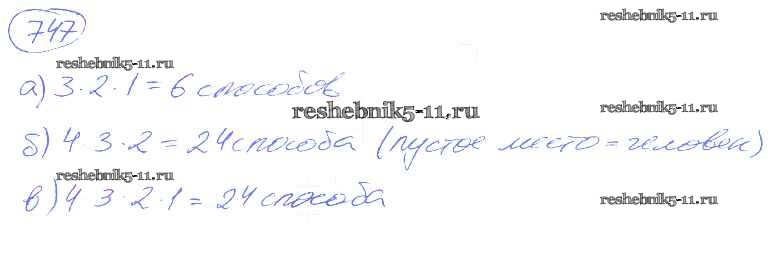 747
reshebnik5-11.ru
reshebnik5-11.ru
а) 3·2·1=6 способов
reshebnik5-11.ru
reshebnik5-11.ru
б) 4·3·2=24 способа (пустое место=человек)
reshebnik5-11.ru
в) 4 3·2·1=24 способа
reshebnik5-11.ru